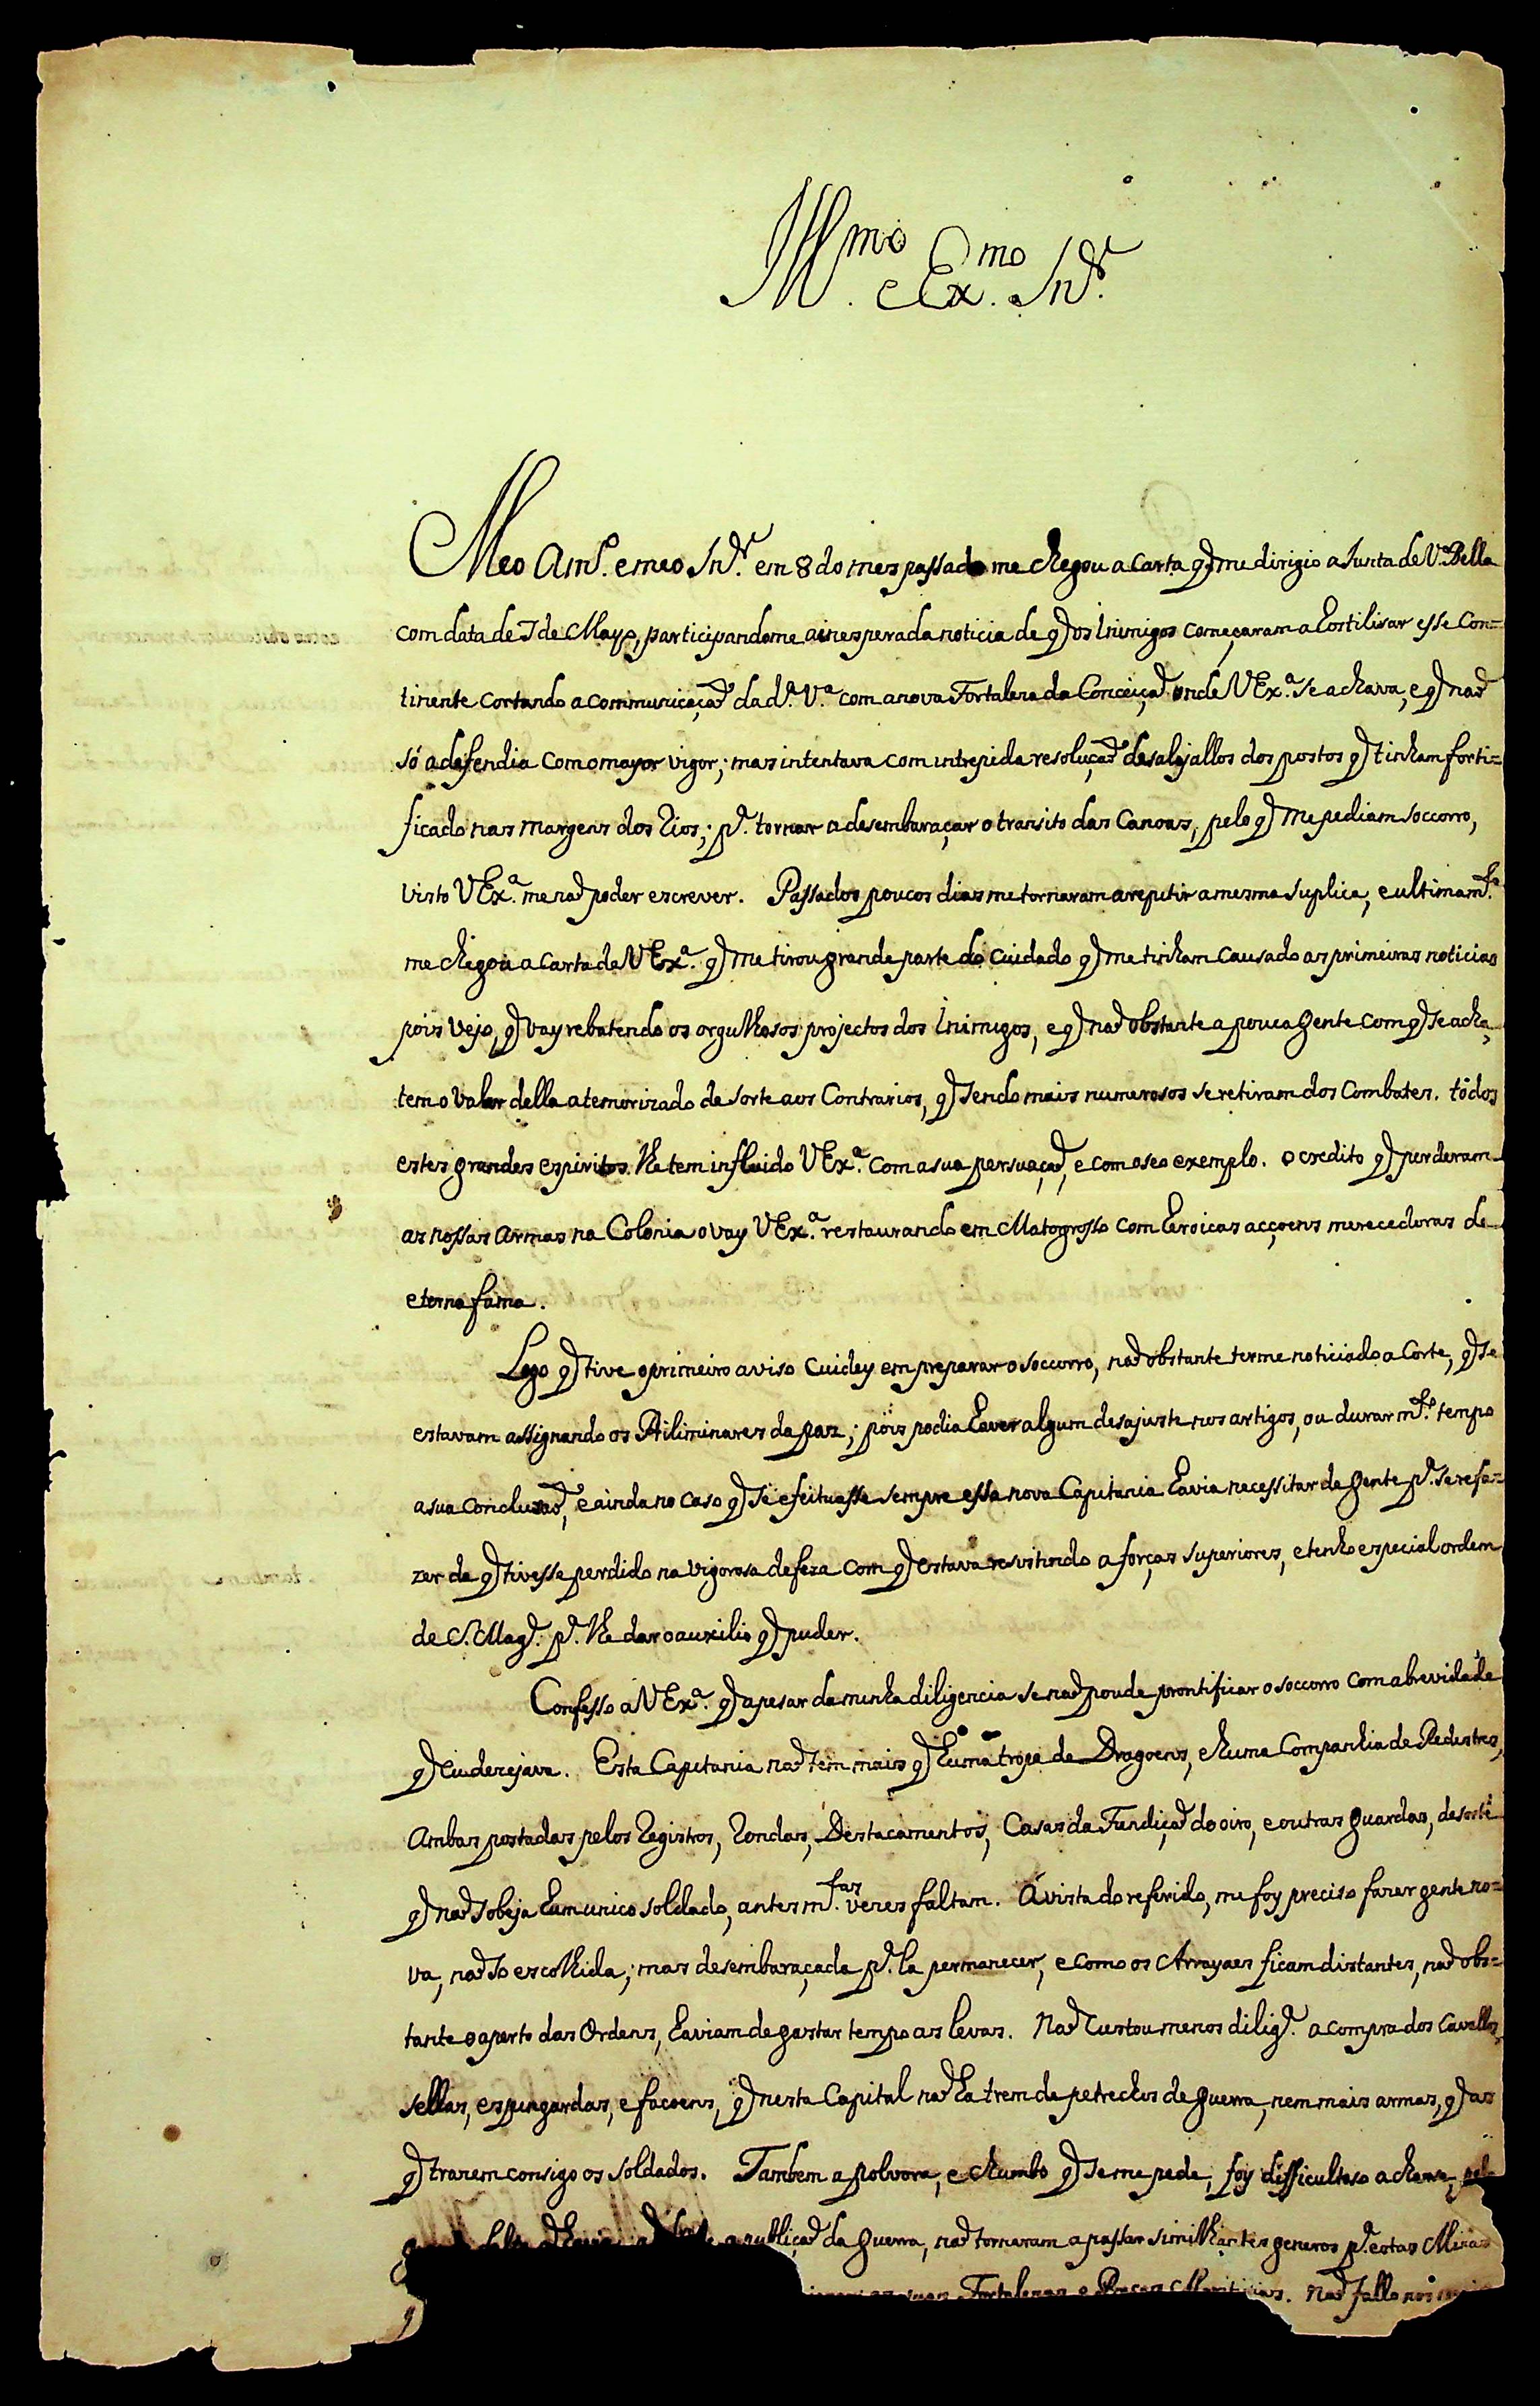 Ill.mo e Ex.mo Snr.
Meo Am.o e meo Snr. em 8 do mes passado me chegou a Carta q̃ me dirigio a Junta de V.a Bella
com data de 7 de Mayo, participandome a inesperada noticia de q̃ os Inimigos começaram a hostilizar esse Con=
tinente cortando a communicaçaõ da d.a V.a com a nova Fortaleza da Conceiçaõ onde V Ex.a se achava, e q̃ naõ
só a defendia com o mayor vigor; mas intentava com intrepida resoluçaõ desalojallos dos postos q̃ tinham forti=
ficado nas margens dos Rios; p.a tornar a desembaraçar o transito das Canoas, pelo q̃ me pediam soccorro,
visto V Ex.a me naõ poder escrever. Passados poucos dias me tornaram a repitir a mesma suplica, e ultimam.te
me chegou a Carta de V Ex.a q̃ me tirou grande parte do cuidado q̃ me tinham causado as primeiras noticias
pois vejo, q̃ vay rebatendo os orgulhosos projectos dos Inimigos, e q̃ naõ obstante a pouca gente com q̃ se acha,
tem o valor della atemorizado de sorte aos Contrarios, q̃ sendo mais numerosos se retiram dos Combates. todos
estes grandes espiritos lhe tem influido V Ex.a com a sua persuaçaõ, e com o seo exemplo. o credito q̃ perderam
as nossas Armas na Colonia o vay V Ex.a restaurando em Matogrosso com heroicas acçoens merecedoras de
eterna fama.
Logo q̃ tive o primeiro aviso cuidey em preparar o soccorro, naõ obstante terme noticiado a Corte, q̃ se
estavam assignando os Piliminares da paz; pois podia haver algum desajuste nos artigos, ou durar m.to tempo
a sua conclusaõ, e ainda no caso q̃ se efeituasse sempre essa nova Capitania havia necessitar de gente p.a se refa=
zer da q̃ tivesse perdido na vigorosa defeza com q̃ estava resistindo a forças superiores, e tenho especial ordem
de S. Mag.e p.a lhe dar o auxilio q̃ puder.
Confesso a V Ex.a q̃ apesar da minha diligencia se naõ poude prontificar o soccorro com a brevidade
q̃ eu dezejava. Esta Capitania naõ tem mais q̃ huma tropa de Dragoens, e huma Companhia de Pedestres,
Ambas postadas pelos Registros, Rondas, Destacamentos, Casas da Fundiçaõ do oiro, e outras guardas, de sorte
q̃ naõ sobeja hum unico soldado, antes m.tas vezes faltam. Á vista do referido, me foy preciso fazer gente no=
va, naõ só escolhida; mas desembaraçada p.a la permanecer, e como os Arrayaes ficam distantes, naõ obs=
tante o aperto das Ordens, haviam de gastar tempo as levas. Naõ custou menos dilig.a a compra dos Cavallos,
sellas, espingardas, e facoens, q̃ nesta Capital naõ ha trem de petrechos de guerra, nem mais armas, q̃ as
q̃ trazem consigo os soldados. Tambem a polvora, e chumbo q̃ se me pede, foy difficultoso acharse,
publicaçaõ da guerra, naõ tornaram a passar similhantes generos p.a estas Minas
Fortalezas e Praças Maritimas. Naõ fallo nos
q̃